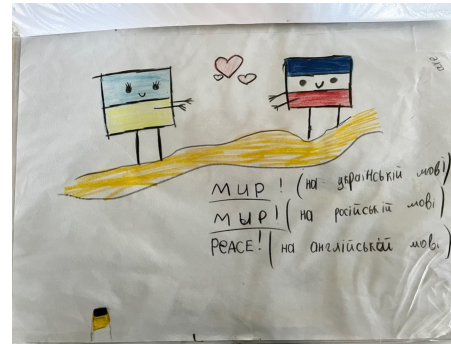 МИР! (на українській мові)
МЫР! (на російській мові)
PEACE! (на англійській мові)